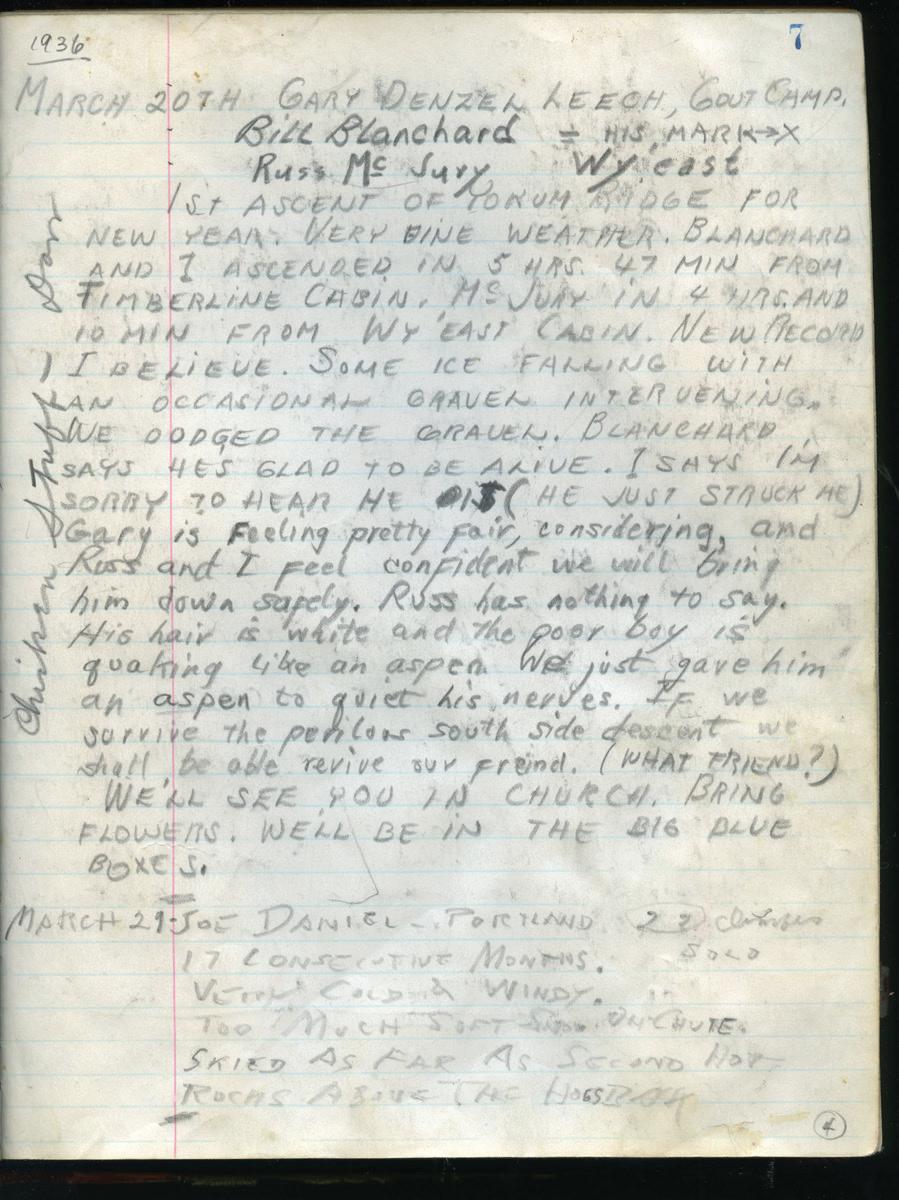 1936
7
MARCH 20TH GARY DENZEL LEECH, GOVT CAMP.
Bill Blanchard = HIS MARK→X
Russ Mc Jury Wy'east
1st ASCENT OF YOKUM RIDGE FOR
NEW YEAR. VERY FINE WEATHER. BLANCHARD
AND I ASCENDED IN 5 HRS. 47 MIN FROM
TIMBERLINE CABIN. Mc JURY IN 4 HRS. AND
10 MIN FROM WY'EAST CABIN. NEW RECORD
I BELIEVE. SOME ICE FALLING WITH
AN OCCASIONAL GRAVEL INTERVENING.
WE DODGED THE GRAVEL. BLANCHARD
SAYS HES GLAD TO BE ALIVE. I SAYS I'M
SORRY TO HEAR HE IS (HE JUST STRUCK ME)
Gary is Feeling pretty fair, considering, and
Russ and I feel confident we will bring
him down safely. Russ has nothing to say.
His hair is white and the poor boy is
quaking like an aspen. We just gave him
an aspen to quiet his nerves. If we
survive the perilous south side descent we
shall be able revive our freind. (WHAT FRIEND?)
WE'LL SEE YOU IN CHURCH. BRING
FLOWERS. WE'LL BE IN THE BIG BLUE
BOXES.
Chicken Stuff
MARCH 29-JOE DANIEL - PORTLAND 22
17 CONSECUTIVE MONTHS. SOLO
VERY COLD & WINDY.
TOO MUCH SOFT SNOW ON CHUTE.
SKIED AS FAR AS SECOND HOT
ROCKS ABOVE THE HOGSBACK
4